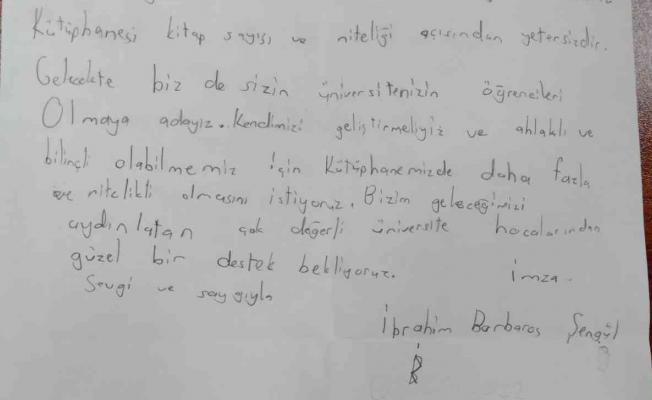 Kütüphanesi kitap sayısı ve niteliği açısından yetersizdir.
Gelecekte biz de sizin üniversitenizin öğrencileri
Olmaya adayız. Kendimizi geliştirmeliyiz ve ahlaklı ve
bilinçli olabilmemiz için kütüphanemizde daha fazla
ve nitelikli olmasını istiyoruz. Bizim geleceğimizi
aydınlatan çok değerli üniversite hocalarından
güzel bir destek bekliyoruz. İmza.
Sevgi ve saygıyla
İbrahim Barbaros Şengül